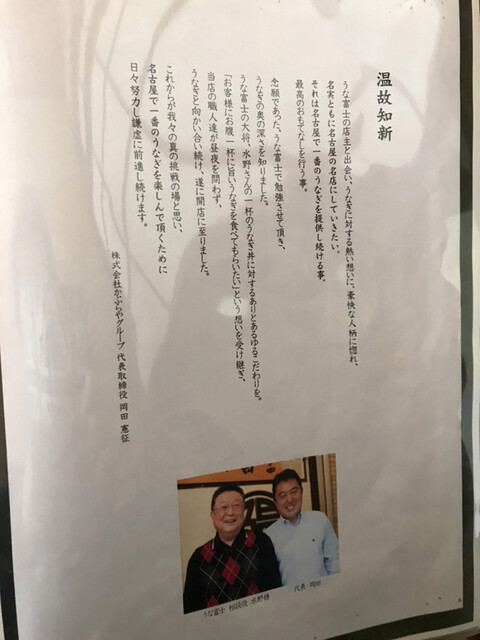 温故知新
うな富士の店主と出会い、うなぎに対する熱い想いに、豪快な人柄に惚れ、
名実ともに名古屋の名店にしていきたい。
それは名古屋で一番のうなぎを提供し続ける事。
最高のおもてなしを行う事。
念願であった、うな富士で勉強させて頂き、
うなぎの奥の深さを知りました。
うな富士の大将、水野さんの一杯のうなぎ丼に対するありとあるゆるこだわりを。
「お客様にお腹一杯に旨いうなぎを食べてもらいたい」という想いを受け継ぎ、
当店の職人達が昼夜を問わず、
うなぎと向かい合い続け、遂に開店に至りました。
これからが我々の真の挑戦の場と思い、
名古屋で一番のうなぎを楽しんで頂くために
日々努力し謙虚に前進し続けます。
株式会社かぶらやグループ 代表取締役 岡田 憲征
うな富士 相談役 水野様
代表 岡田